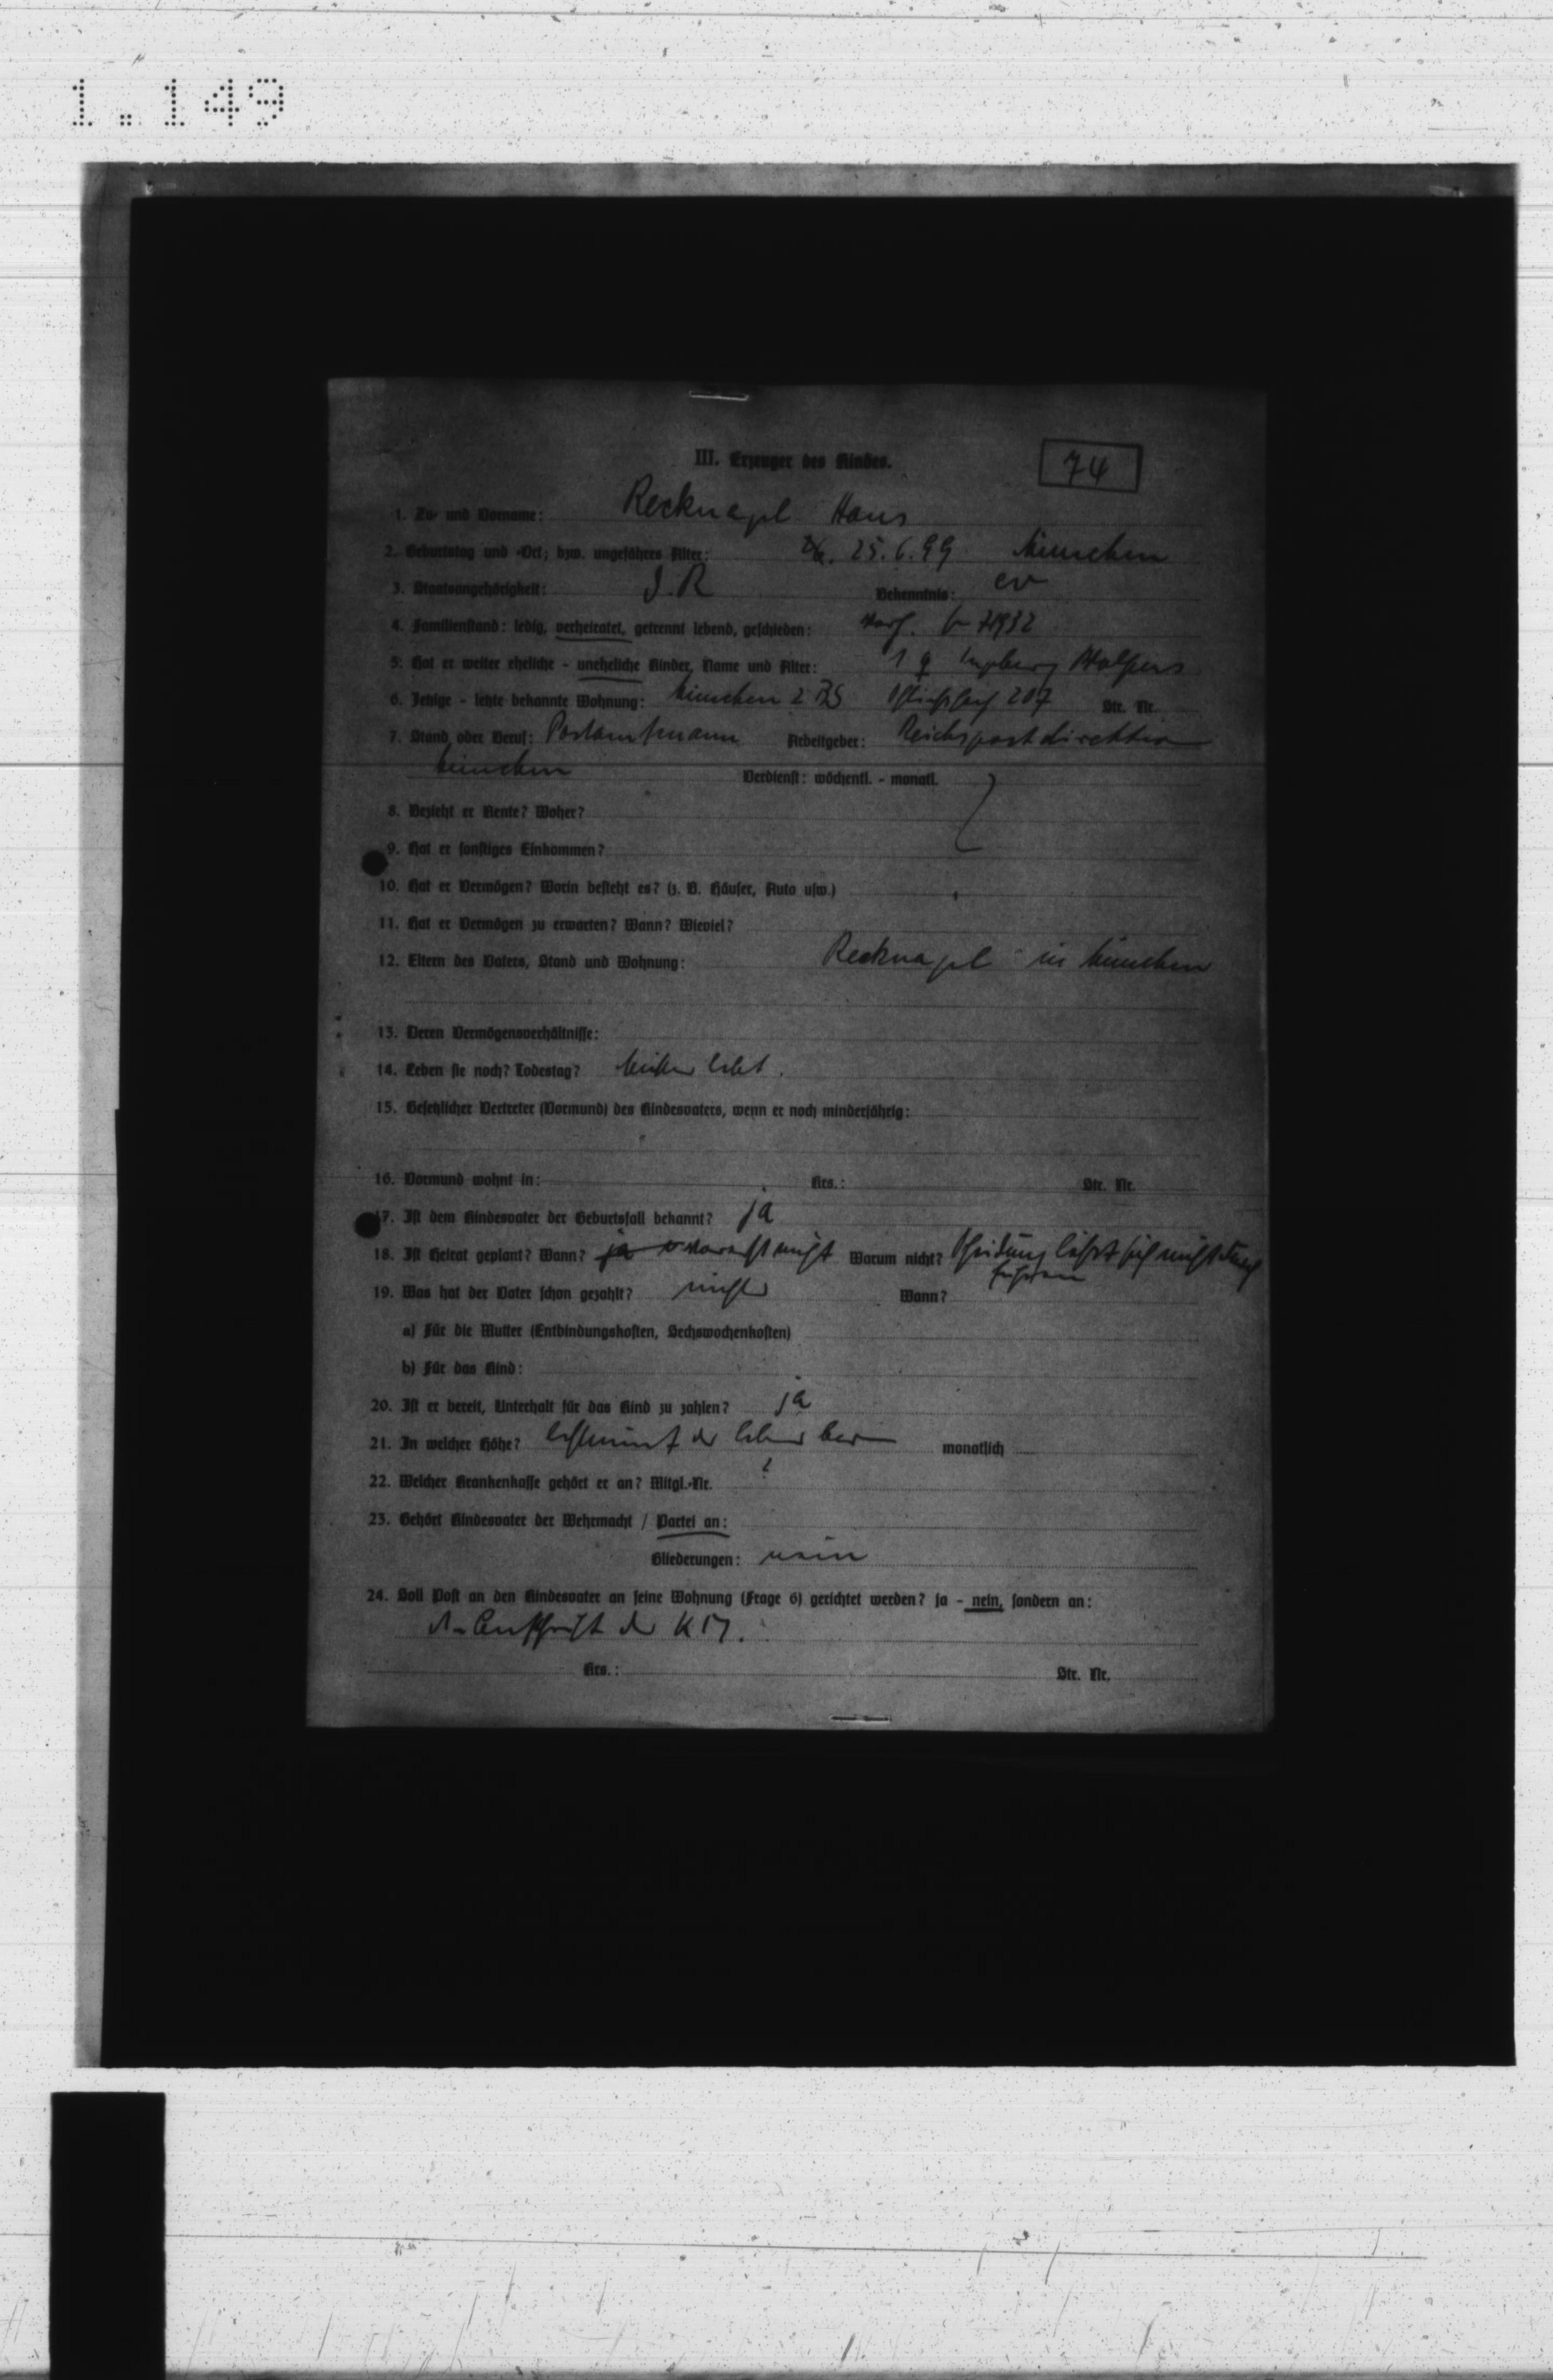 1.149
III. Erzeuger des Kindes.
74
1. Zu- und Vorname: Recknagel Hans
2. Geburtstag und -Ort; bzw. ungefähres Alter: 25.6.99 München
3. Staatsangehörigkeit: D.R Bekenntnis: ev
4. Familienstand: ledig, verheiratet, getrennt lebend, geschieden: 1932
5. Hat er weiter eheliche - uneheliche Kinder, Name und Alter: 1
6. Jetzige - letzte bekannte Wohnung: München 2 BS 207 Str. Nr.
7. Stand oder Beruf: Postamtmann Arbeitgeber: Reichspostdirektion
München Verdienst: wöchentl. - monatl.
8. Bezieht er Rente? Woher?
9. Hat er sonstiges Einkommen?
10. Hat er Vermögen? Worin besteht es? (z. B. Häuser, Auto usw.)
11. Hat er Vermögen zu erwarten? Wann? Wieviel?
12. Eltern des Vaters, Stand und Wohnung: Recknagel in München
13. Deren Vermögensverhältnisse:
14. Leben sie noch? Todestag? Mutter lebt.
15. Gesetzlicher Vertreter (Vormund) des Kindesvaters, wenn er noch minderjährig:
16. Vormund wohnt in: Krs.: Str. Nr.
17. Ist dem Kindesvater der Geburtsfall bekannt? ja
18. Ist Heirat geplant? Wann? ja nicht Warum nicht? Scheidung läßt sich nicht durch
führen
19. Was hat der Vater schon gezahlt? nichts Wann?
a) Für die Mutter (Entbindungskosten, Sechswochenkosten)
b) Für das Kind:
20. Ist er bereit, Unterhalt für das Kind zu zahlen? ja
21. In welcher Höhe? bestimmt der monatlich
22. Welcher Krankenkasse gehört er an? Mitgl.-Nr. ?
23. Gehört Kindesvater der Wehrmacht / Partei an:
Gliederungen: nein
24. Soll Post an den Kindesvater an seine Wohnung (Frage 6) gerichtet werden? ja - nein, sondern an:
Anschrift der K M.
Krs.: Str. Nr.